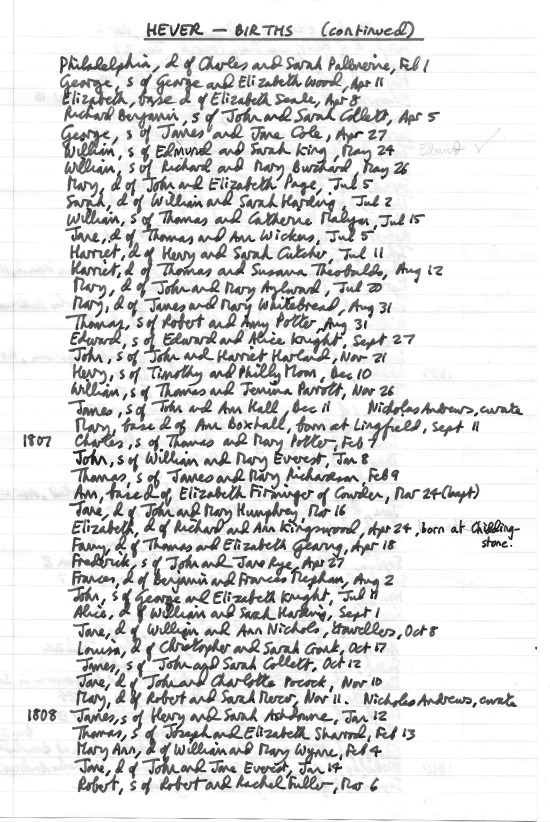 HEVER — BIRTHS (continued)
Philadelphia, d of Charles and Sarah Palbreine, Feb 1
George, s of George and Elizabeth Wood, Apr 11
Elizabeth, base d of Elizabeth Seale, Apr 8
Richard Benjamin, s of John and Sarah Collett, Apr 5
George, s of James and Jane Cole, Apr 27
William, s of EDMUND and Sarah King, May 24 Edmund ✓
William, s of Richard and Mary Burchard, May 26
Mary, d of John and Elizabeth Page, Jul 5
Sarah, d of William and Sarah Harding, Jul 2
William, s of Thomas and Catherine Malyan, Jul 15
Jane, d of Thomas and Ann Wickers, Jul 5
Harriet, d of Henry and Sarah Cutcher, Jul 11
Harriet, d of Thomas and Susanna Theobalds, Aug 12
Mary, d of John and Mary Aylward, Jul 20
Mary, d of James and Mary Whitebread, Aug 31
Thomas, s of Robert and Amy Potter, Aug 31
Edward, s of Edward and Alice Knight, Sept 27
John, s of John and Harriet Harland, Nov 21
Henry, s of Timothy and Philly Moon, Dec 10
William, s of Thomas and Jemima Parrott, Nov 26
James, s of John and Ann Hall, Dec 11 Nicholas Andrews, curate
Mary, base d of Ann Boxhall, born at Lingfield, Sept 11
1807 Charles, s of Thomas and Mary Potter, Feb 7
John, s of William and Mary Everest, Jan 8
Thomas, s of James and Mary Richardson, Feb 9
Ann, base d of Elizabeth Firminger of Cowden, Mar 24 (bapt)
Jane, d of John and Mary Humphrey, Mar 16
Elizabeth, d of Richard and Ann Kingswood, Apr 24, born at Chidding-
stone.
Fanny, d of Thomas and Elizabeth Geary, Apr 18
Frederick, s of John and Jane Rye, Apr 27
Frances, d of Benjamin and Frances Mepham, Aug 2
John, s of George and Elizabeth Knight, Jul 11
Alice, d of William and Sarah Harding, Sept 1
Jane, d of William and Ann Nichols, travellers, Oct 8
Louisa, d of Christopher and Sarah Cronk, Oct 17
James, s of John and Sarah Collett, Oct 12
Jane, d of John and Charlotte Pocock, Nov 10
Mary, d of Robert and Sarah Mercer, Nov 11. Nicholas Andrews, curate
1808 James, s of Henry and Sarah Ashdowne, Jan 12
Thomas, s of Joseph and Elizabeth Sharrod, Feb 13
Mary Ann, d of William and Mary Wynne, Feb 4
Jane, d of John and Jane Everest, Jan 14
Robert, s of Robert and Rachel Fuller, Mar 6